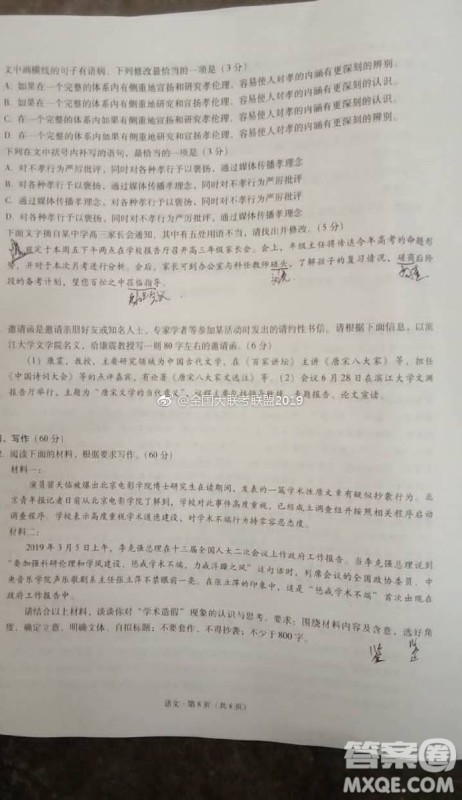 文中画横线的句子有语病，下列修改最恰当的一项是（3分）
A. 如果在一个完整的体系内有侧重地宣扬和研究孝伦理，容易使人对孝的内涵有更深刻的辨别。
B. 如果在一个完整的体系内有侧重地宣扬和研究孝伦理，容易使人对孝的内涵有更深刻的认识。
C. 在一个完整的体系内有侧重地研究和宣扬孝伦理，容易使人对孝的内涵有更深刻的认识。
D. 在一个完整的体系内如果有侧重地研究和宣扬孝伦理，容易使人对孝的内涵有更深刻的辨别。
下列在文中括号内补写的语句，最恰当的一项是（3分）
A. 对不孝行为严厉批评，同时对各种孝行予以褒扬，通过媒体传播孝理念
B. 对各种孝行予以褒扬，通过媒体传播孝理念，同时对不孝行为严厉批评
C. 通过媒体传播孝理念，对各种孝行予以褒扬，同时对不孝行为严厉批评
D. 对各种孝行予以褒扬，同时对不孝行为严厉批评，通过媒体传播孝理念
下面文字摘自某中学高三家长会通知，其中有五处用语不当，请找出并修改。（5分）
定于本周五下午两点在学校报告厅召开高三年级家长会。会上，年级主任将传达今年高考的命题形
势，并对于本次月考进行分析。会后，家长可到办公室与科任教师 ，了解孩子的复习情况，磋商后阶
段的备考计划，望您百忙之中莅临指导。
邀请函是邀请亲朋好友或知名人士、专家学者等参加某活动时发出的请约性书信。请根据下面信息，以滨
江大学文学院名义，给康震教授写一则80字左右的邀请函。（6分）
（1）康震，教授，主要研究领域为中国古代文学，在《百家讲坛》主讲《唐宋八大家》等，担任
《中国诗词大会》等的点评嘉宾，有论著《唐宋八大家文选注》等。（2）会议6月28日在滨江大学文渊
报告厅举行，主题为“唐宋文学的当代意义”， 主题报告、论文宣读。
@全国大联考联盟2019
写作（60分）
阅读下面的材料，根据要求写作。（60分）
材料一：
演员翟天临被爆出北京电影学院博士研究生在读期间，发表的一篇学术性质文章有疑似抄袭行为，北
京青年报记者日前从北京电影学院了解到，学校对此事件高度重视，已经成立调查组并按照相关程序启动
调查程序。学校表示高度重视学术道德建设，对学术不端行为持零容忍态度。
材料二：
2019年3月5日上午，李克强总理在十三届全国人大二次会议上作政府工作报告。当李克强总理说到
“要加强科研伦理和学风建设，惩戒学术不端，力戒浮躁之风”这句话时，列席会议的全国政协委员、中
央音乐学院声乐歌剧系主任张立萍不禁眼前一亮。在张立萍的印象中，这是“惩戒学术不端”首次出现在
政府工作报告中。
请结合以上材料，谈谈你对“学术造假”现象的认识与思考。要求：围绕材料内容及含意，选好角
度，确定立意，明确文体，自拟标题；不要套作，不得抄袭；不少于800字。
语文·第8页（共8页）
答案圈
MXQE.COM